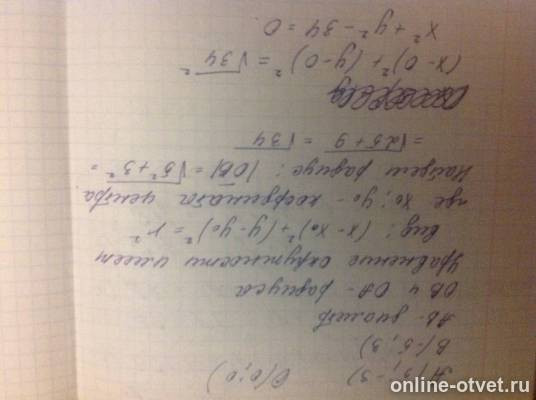 A(5; -3) C(0; 0)
B(-5; 3)
AB - диаметр
OB и OA - радиуса
Уравнение окружности имеет
вид: (x - x₀)² + (y - y₀)² = r²
где x₀; y₀ - координата центра
Найдем радиус: |OB| = √5² + 3² =
= √25 + 9 = √34
(x - 0)² + (y - 0)² = √34²
x² + y² - 34 = 0
online-otvet.ru